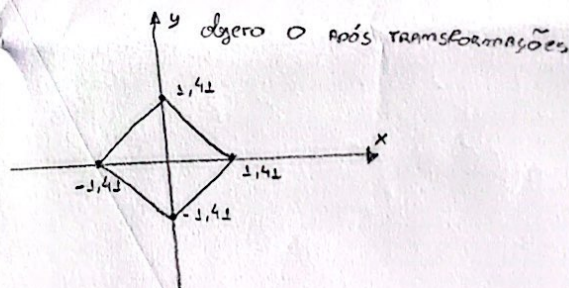 y objero O após transformações
1,41
x
-1,41
1,41
-1,41